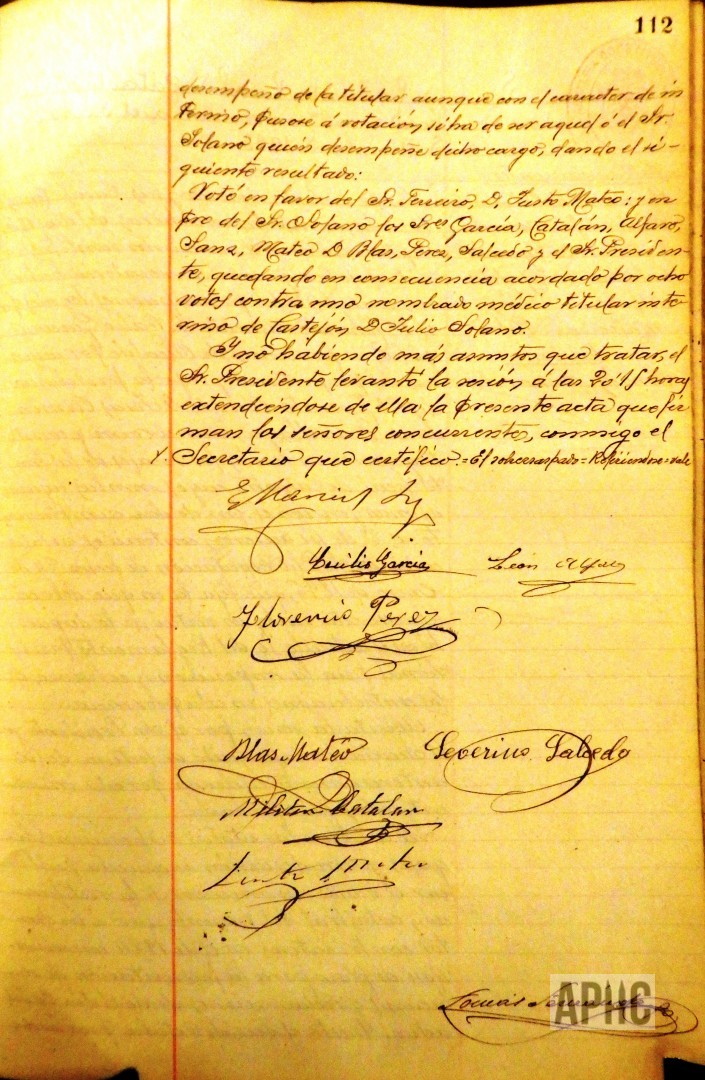 112
desempeño de la titular aunque con el caracter de in
terino, púsose á votación si ha de ser aquel ó el Sr.
Solano quién desempeñe dicho cargo, dando el si-
guiente resultado:
Votó en favor del Sr. Ferreiro, D. Justo Mateo; y en
pro del Sr. Solano los Sres García, Catalán, Alfaro,
Sanz, Mateo D Blas, Perez, Salcedo y el Sr. Presiden-
te, quedando en consecuencia acordado por ocho
votos contra uno nombrado médico titular inte
rino de Castejón D Julio Solano.
Y no habiendo más asuntos que tratar, el
Sr. Presidente levantó la sesión á las 20'15 horas
extendiéndose de ella la presente acta que fir
man los señores concurrente, conmigo el
Secretario que certifico.=El sobrerraspado=Refiriéndose=vale
Cecilio García León Alfaro
Florencio Perez
Blas Mateo Severino Salcedo
Militón Catalan
Justo Mateo
Tomás
APHC